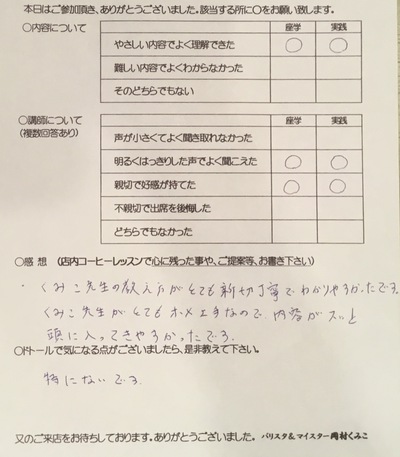 本日はご参加頂き、ありがとうございました。該当する所に〇をお願い致します。
〇内容について 座学 実践
やさしい内容でよく理解できた ○ ○
難しい内容でよくわからなかった
そのどちらでもない
〇講師について 座学 実践
(複数回答あり) 声が小さくてよく聞き取れなかった
明るくはっきりした声でよく聞こえた ○ ○
親切で好感が持てた ○ ○
不親切で出席を後悔した
どちらでもなかった
〇感 想 (店内コーヒーレッスンで心に残った事や、ご提案等、お書き下さい)
・くみこ先生の教え方がとても親切丁寧でわかりやすかったです。
くみこ先生がとてもホメ上手なので、内容がスッと
頭に入ってきやすかったです。
〇ドトールで気になる点がございましたら、是非教えて下さい。
特にないです。
又のご来店をお待ちしております。ありがとうございました。 バリスタ&マイスター 岡村くみこ